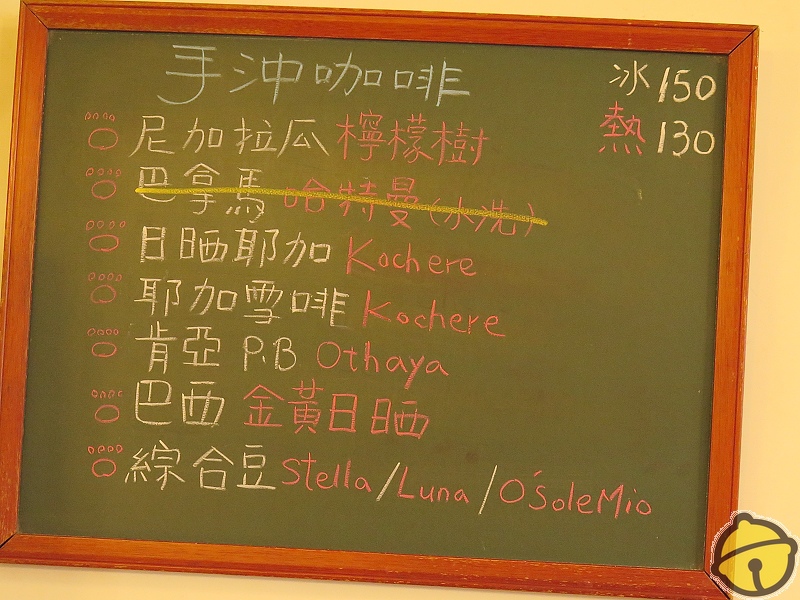 手沖咖啡 冰150
熱130
尼加拉瓜 檸檬樹
巴拿馬 哈特曼(水洗)
日晒耶加 Kochere
耶加雪啡 Kochere
肯亞 P.B Othaya
巴西 金黃日晒
綜合豆 Stella/Luna/O'SoleMio